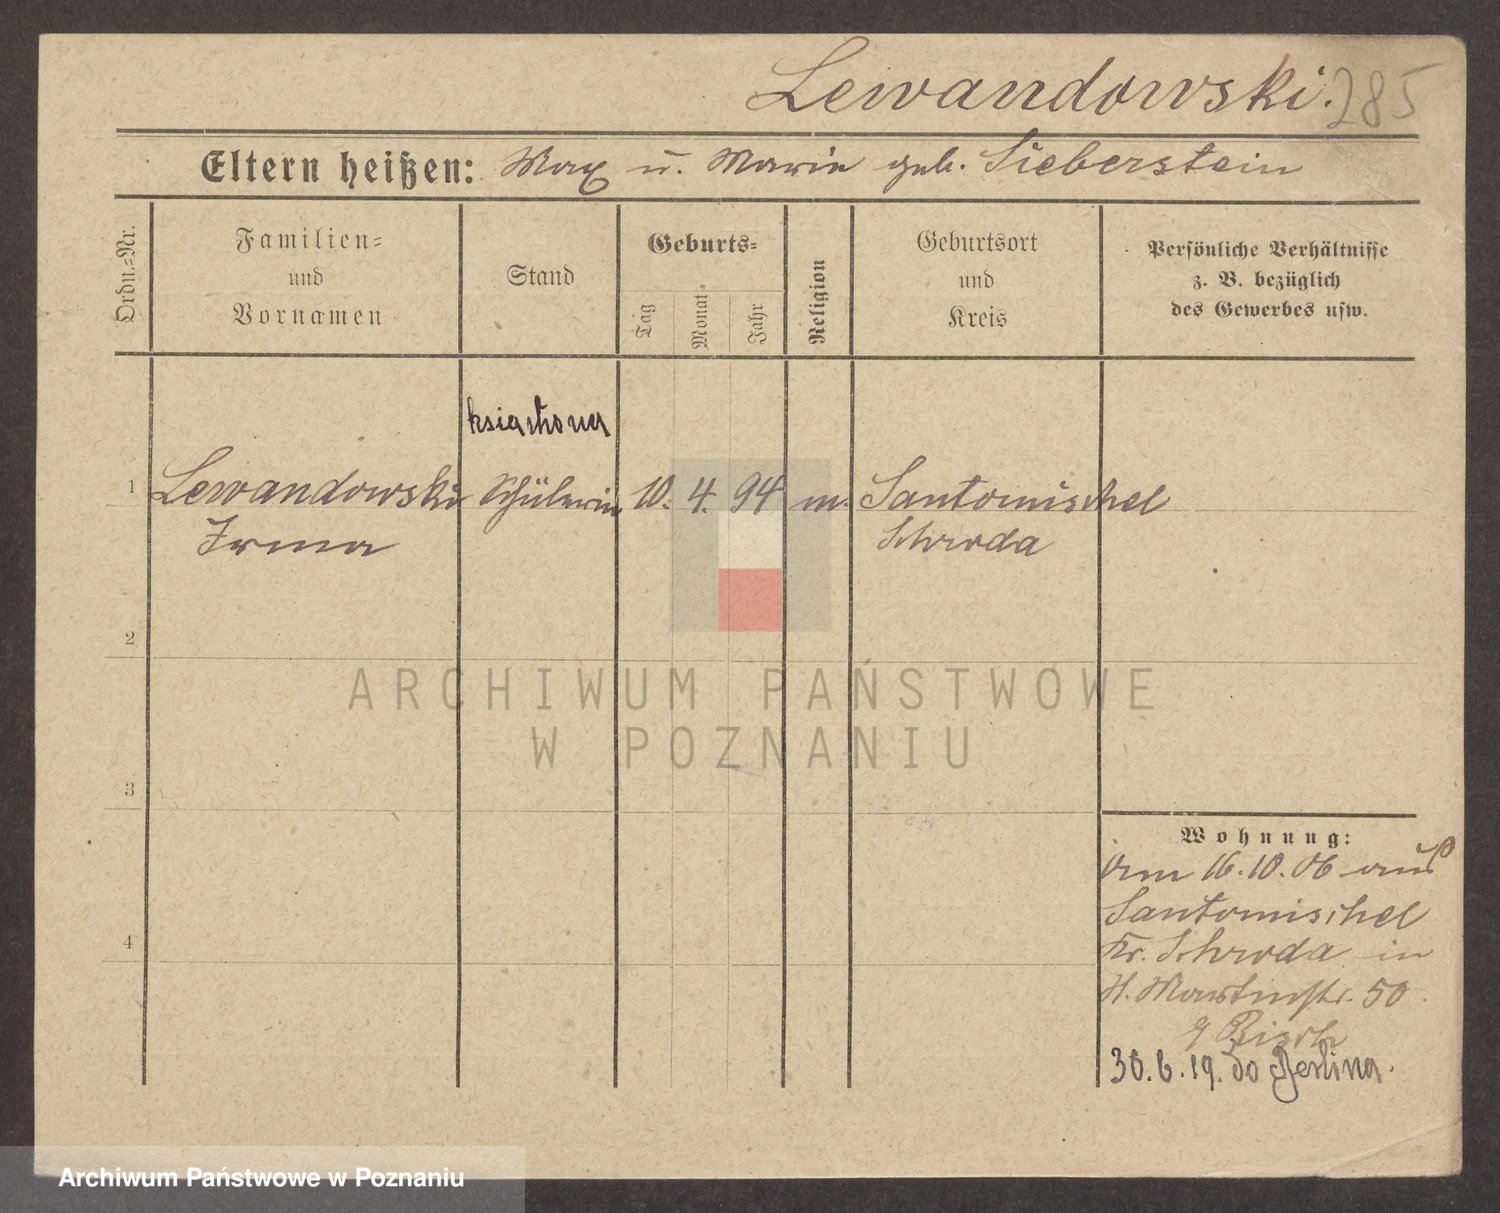 Lewandowski. 285
Eltern heißen: Max u. Marie geb. Sieberstein
Ordn.=Nr.
Familien=
und
Vornamen
Stand
Geburts=
Tag
Monat
Jahr
Religion
Geburtsort
und
Kreis
Persönliche Verhältnisse
z. B. bezüglich
des Gewerbes usw.
1
Lewandowski Schülerin 10. 4. 94 m. Santomischel
Irma Schroda
2
3
4
ARCHIWUM PAŃSTWOWE
W POZNANIU
Wohnung:
Am 16.10.06 aus
Santomischel
Kr. Schroda in
St. Martinstr. 50
30.6.19. do Berlina.
Archiwum Państwowe w Poznaniu